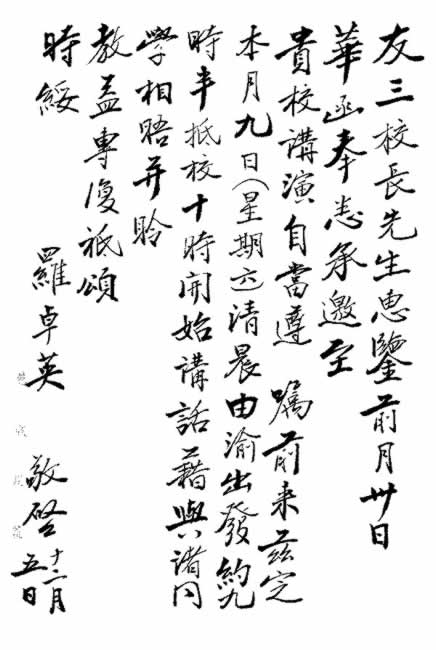 友三校長先生惠鑒前月卅日
華函奉悉承邀至
貴校講演自當遵 囑前来茲定
本月九日(星期六)清晨由渝出發約九
時半抵校十時開始講話藉與諸同
學相晤并聆
教益專復祗頌
時綏
羅卓英
敬啓
十二月
五日